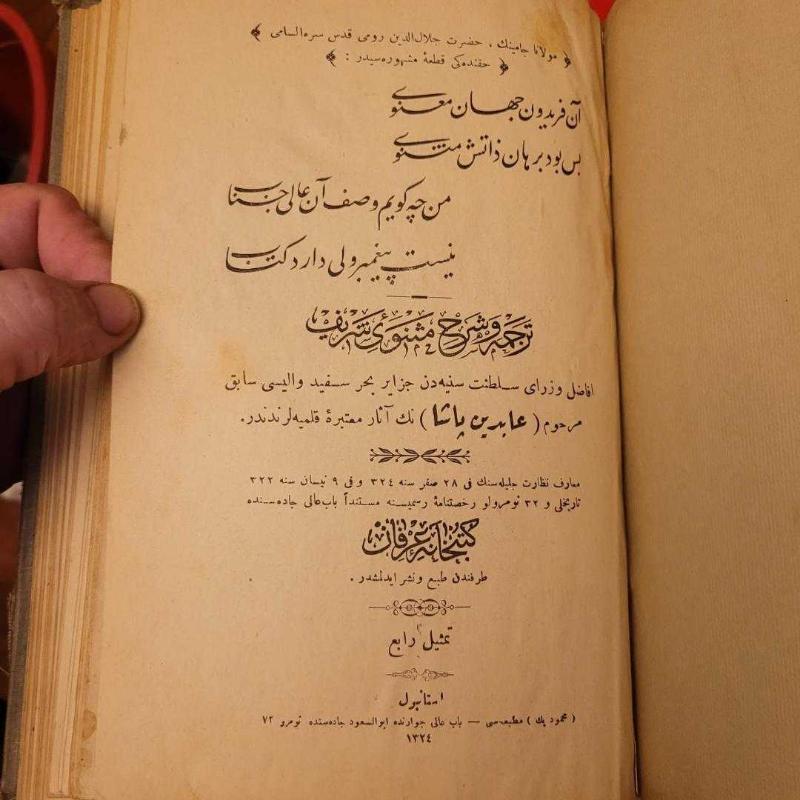 ﴿ مولانا جامينك ، حضرت جلال‌الدين رومى قدس سره السامى ﴾
﴿ حقنده‌كى قطعۀ مشهوره‌سيدر : ﴾
آن فريدون جهان معنوى
بس بود برهان ذاتش مثنوى
من چه كويم وصف آن عالى جناب
نيست پيغمبر ولى دارد كتاب
ترجمه و شرح مثنوئ شريف
افاضل وزراى سلطنت سنيه‌دن جزاير بحر سفيد واليسى سابق
مرحوم ( عابدين پاشا ) نك آثار معتبرۀ قلميه‌لرندندر.
معارف نظارت جليله‌سنك فى ٢٨ صفر سنه ٣٢٤ و فى ٩ نيسان سنه ٣٢٢
تاريخلى و ٣٢ نومرولو رخصتنامۀ رسميسنه مستنداً باب عالى جاده‌سنده
كتبخانه عرفان
طرفندن طبع و نشر ايدلمشدر .
تمثيل رابع
استانبول
( محمود بك ) مطبعه‌سى — باب عالى جوارنده ابوالسعود جاده‌سنده نومرو ٧٢
١٣٢٤